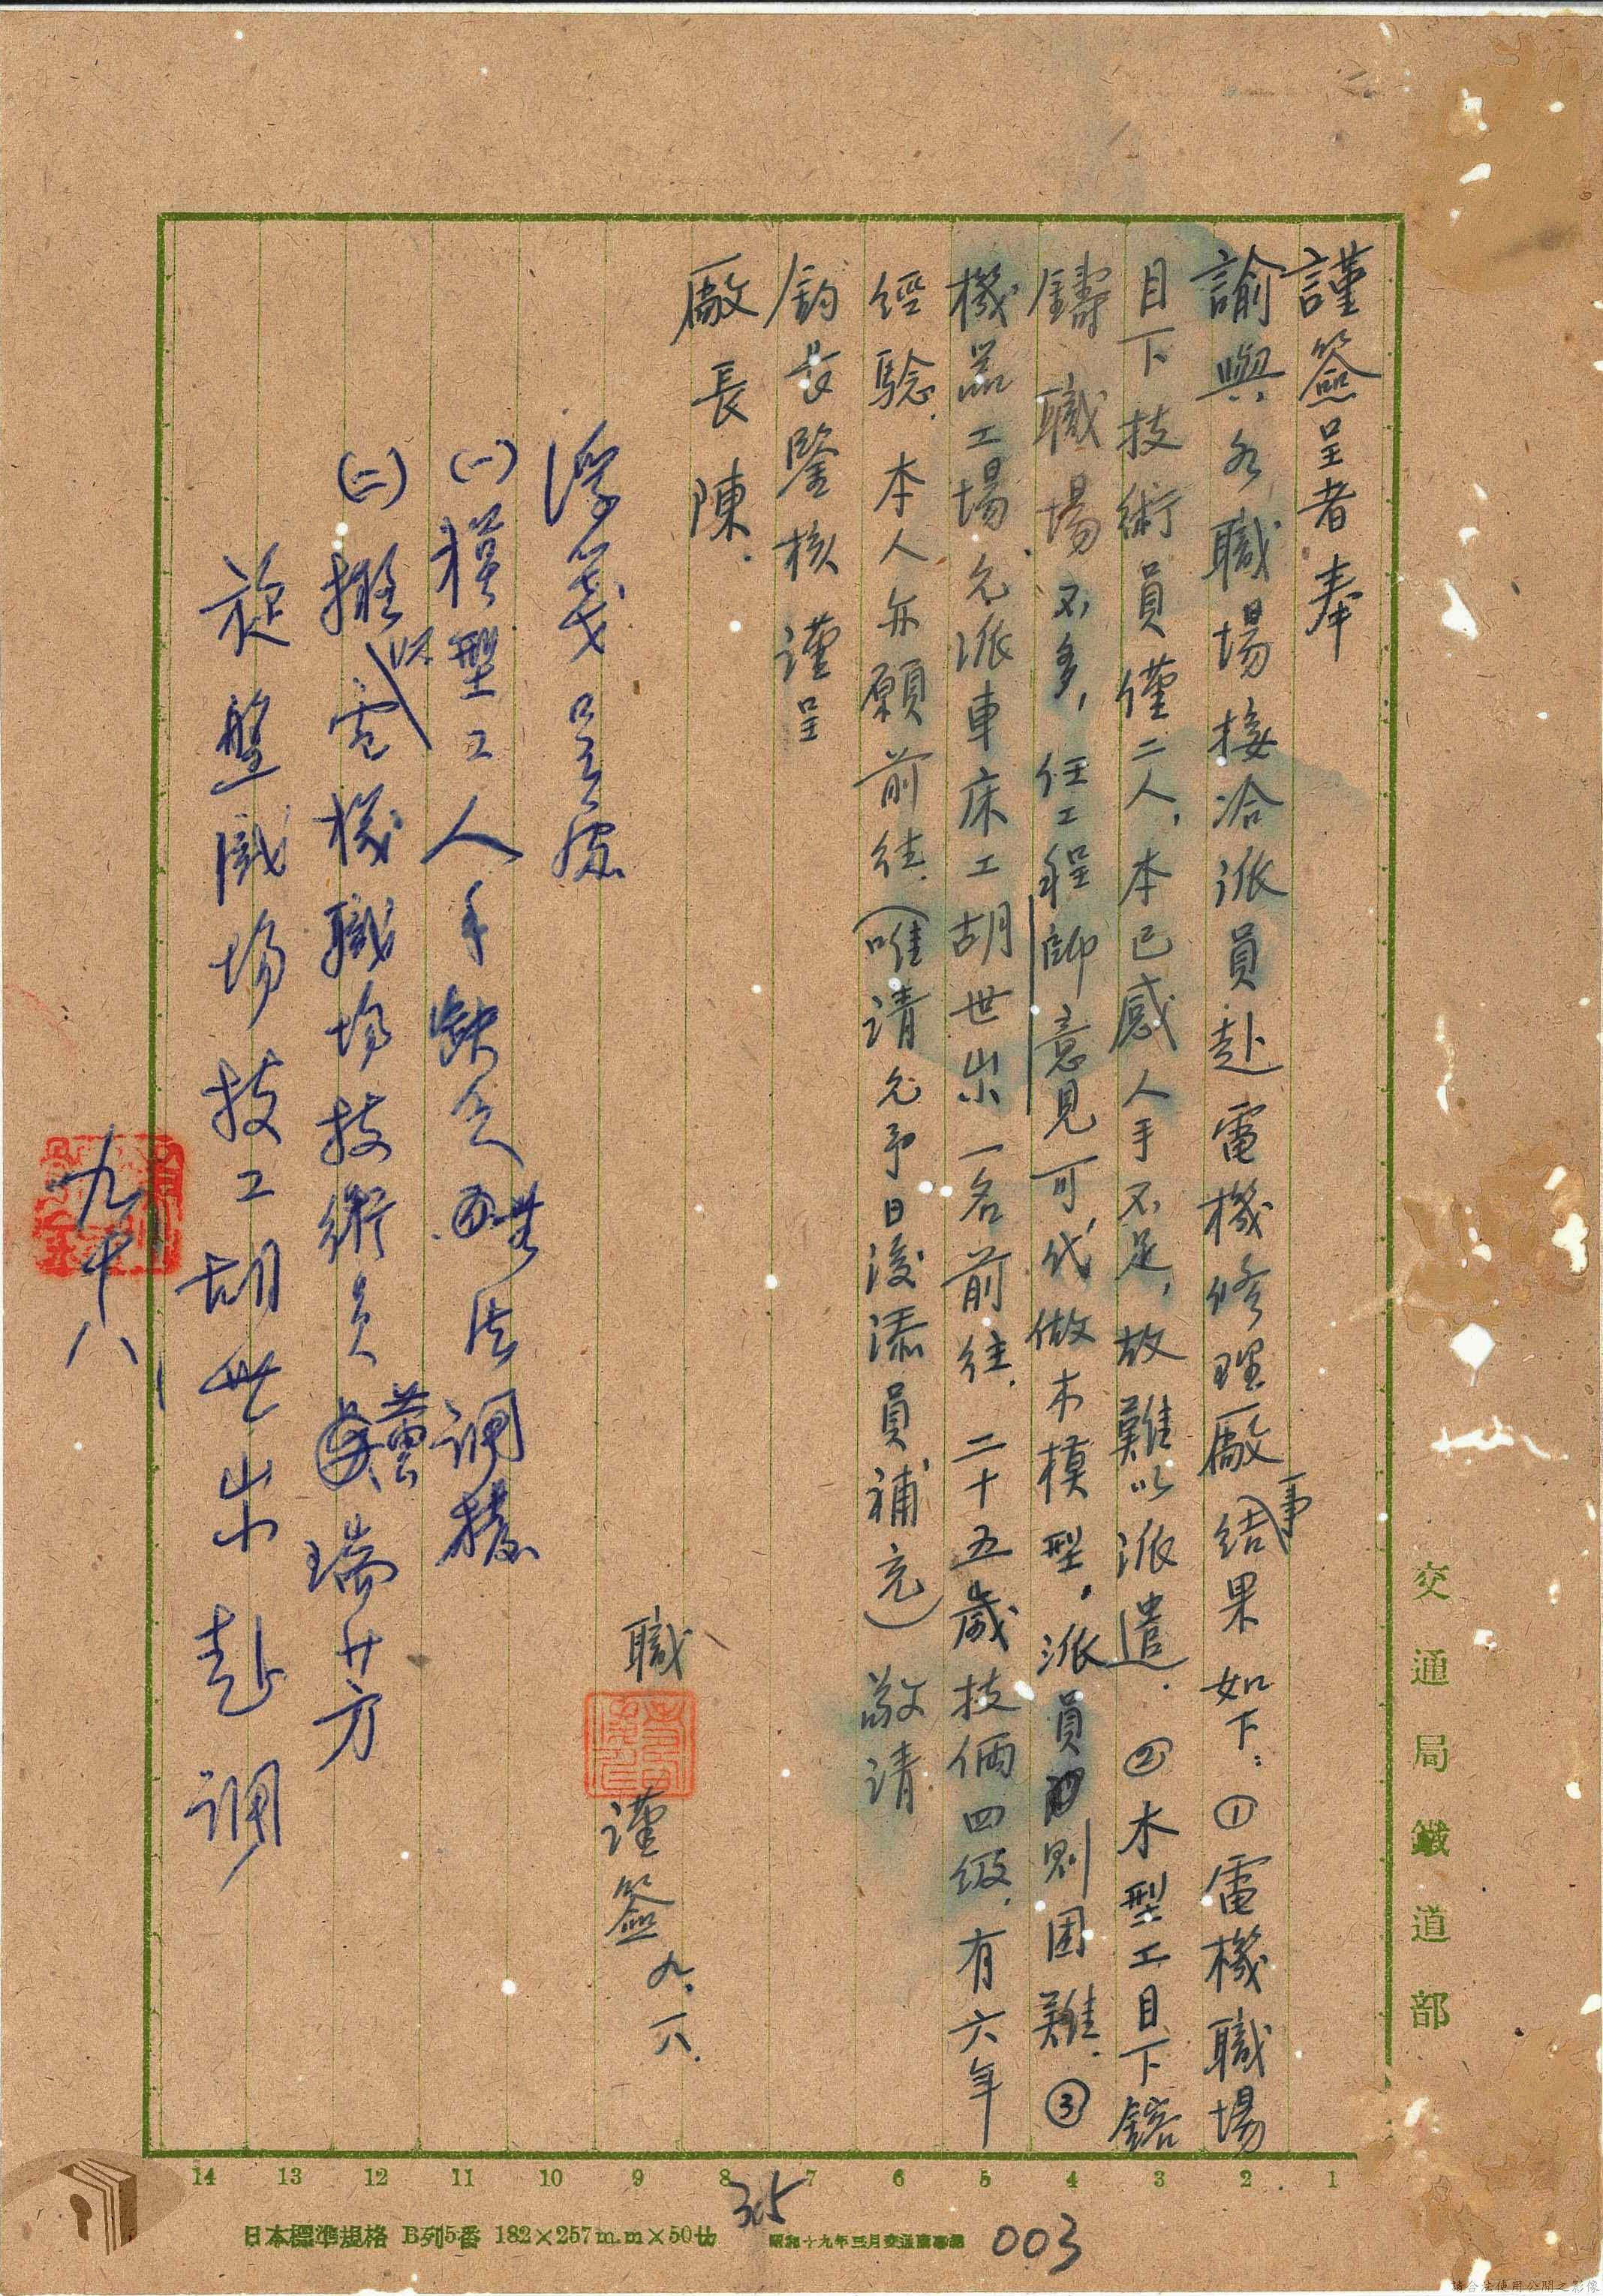 謹簽呈者奉
諭與各職場接洽派員赴電機修理廠事結果如下：①電機職場
目下技術員僅二人，本已感人手不足，故難以派遣．②木型工目下鎔
鑄職場不多，任工程師意見可代做木模型．派員則困難．③
機器工場允派車床工胡世崇一名前往．二十五歲技倆四級．有六年
經驗．本人亦願前往．（唯請允予日後添員補充）敬請
鈞長鑒核 謹呈
廠長陳．
職
謹簽 九．六．
浮箋呈處
(一)模型工人手缺乏無法調援
(二)擬以電機職場技術員 瑞芳
旋盤職場技工胡世崇赴調
九 十八
交通局鐵道部
14 13 12 11 10 9 8 7 6 5 4 3 2 1
日本標準規格 B列5番 182×257m.m×50廿
昭和十九年三月交通
305
003
請合法使用公開之影像